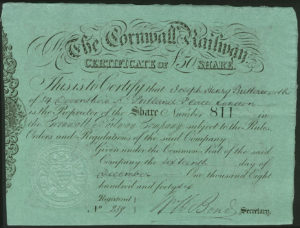 The Cornwall Railway
CERTIFICATE OF £50 SHARE
This is to Certify that Joseph Henry
of 14 Devonshire St Portland Place London
is the Proprietor of the Share Number 811 in
the Cornwall Railway Company subject to the Rules,
Orders and Regulations of the said Company
Given under the Common Seal of the said
Company the sixteenth day of
December One thousand Eight
hundred and forty six
Registered
No
W H Bond Secretary